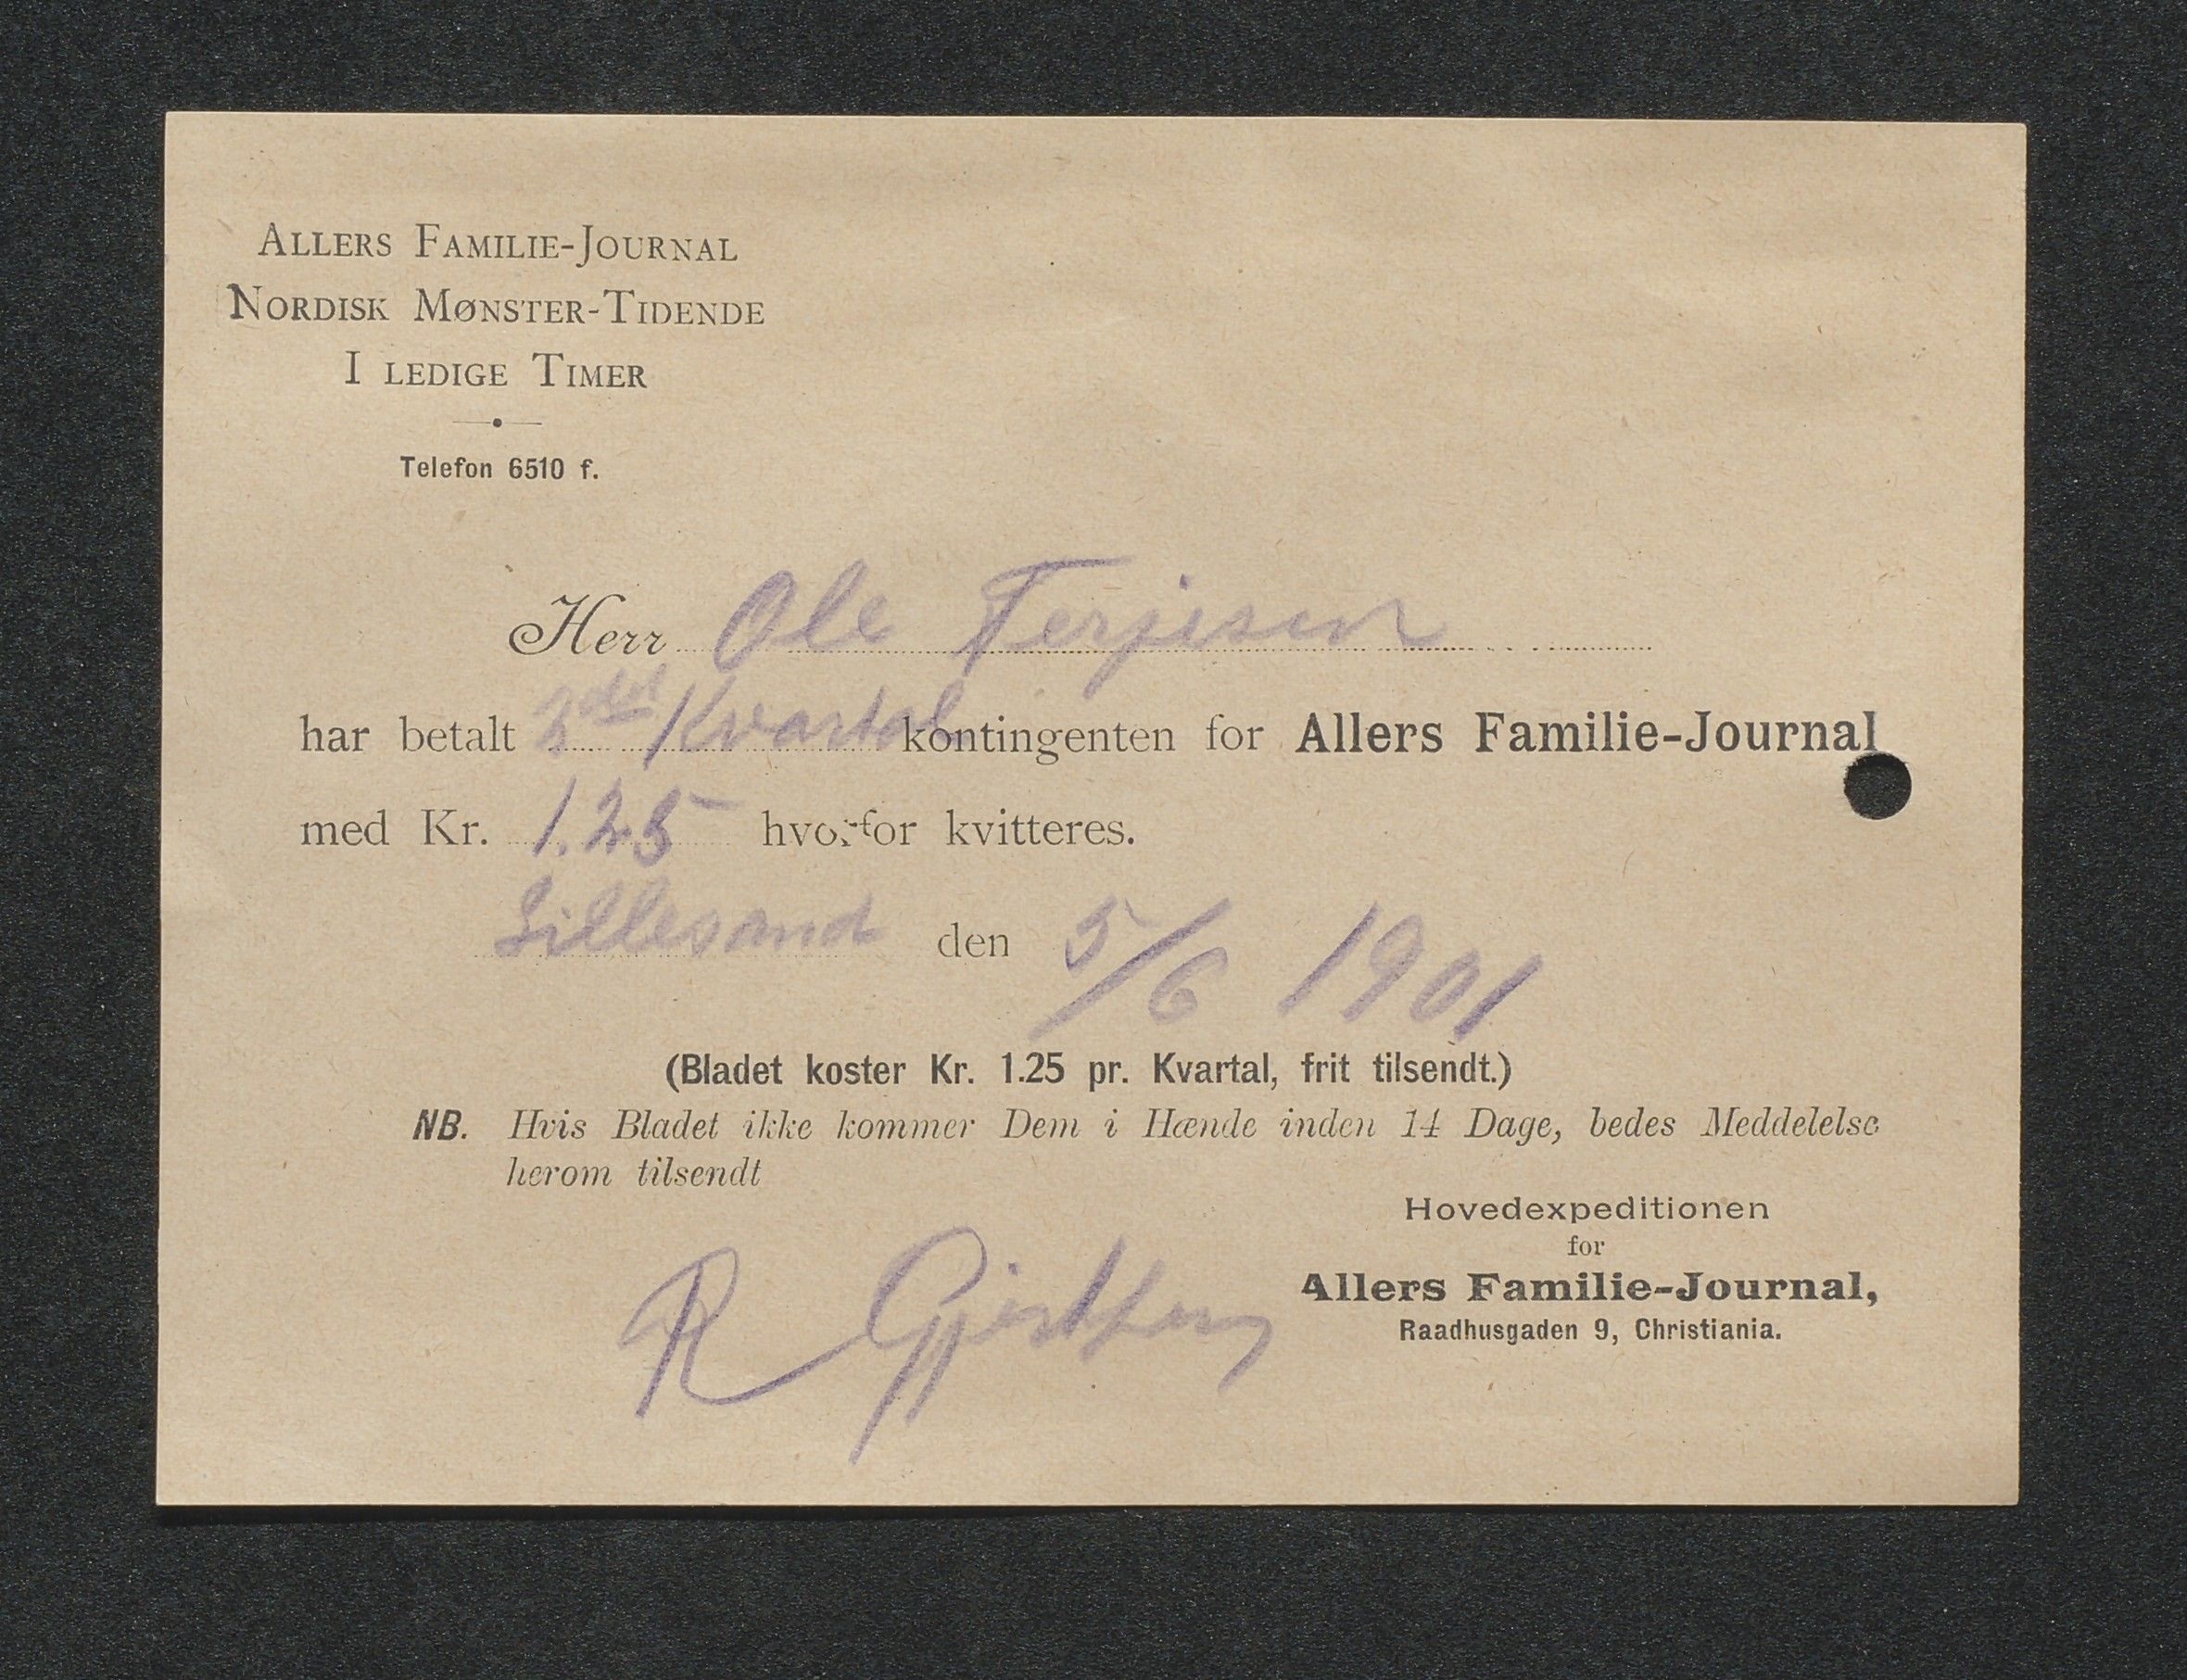 ALLERS FAMILIE-JOURNAL
NORDISK MØNSTER-TIDENDE
I LEDIGE TIMER
Telefon 6510 f.
Herr Ole Terjesen
har betalt Kvartal kontingenten for Allers Familie-Journal
med Kr. 1.25 hvorfor kvitteres.
Lillesand den 5/6 1901
(Bladet koster Kr. 1.25 pr. Kvartal, frit tilsendt.)
NB. Hvis Bladet ikke kommer Dem i Hænde inden 14 Dage, bedes Meddelelse
herom tilsendt
Hovedexpeditionen
for
Allers Familie-Journal,
Raadhusgaden 9, Christiania.
R